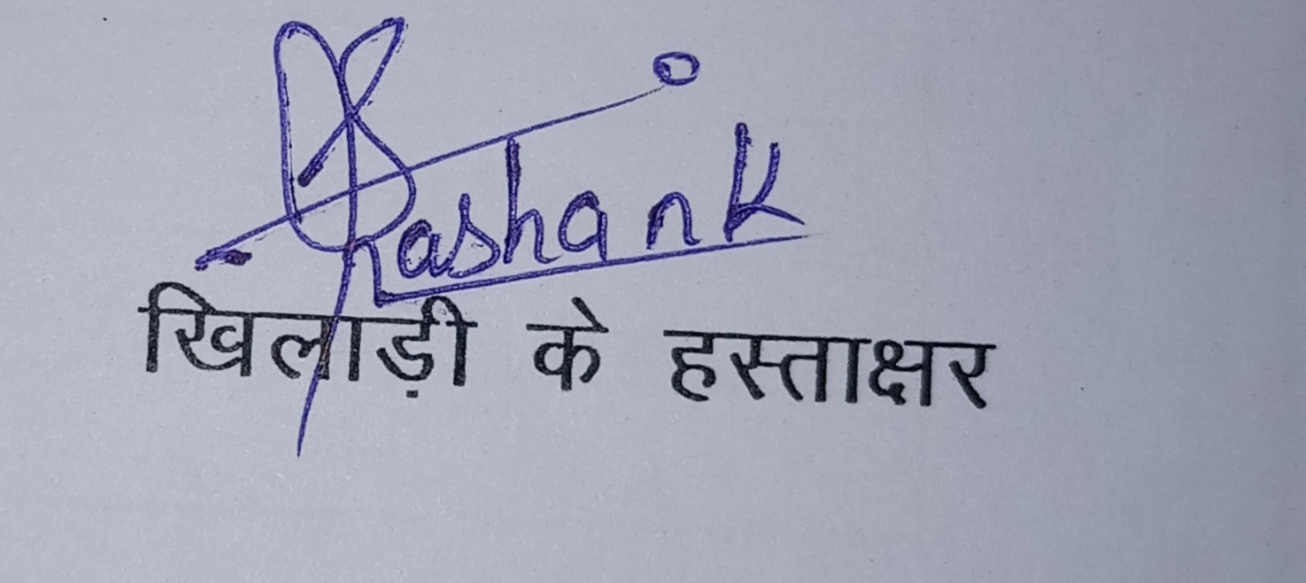 Shashank
खिलाड़ी के हस्ताक्षर